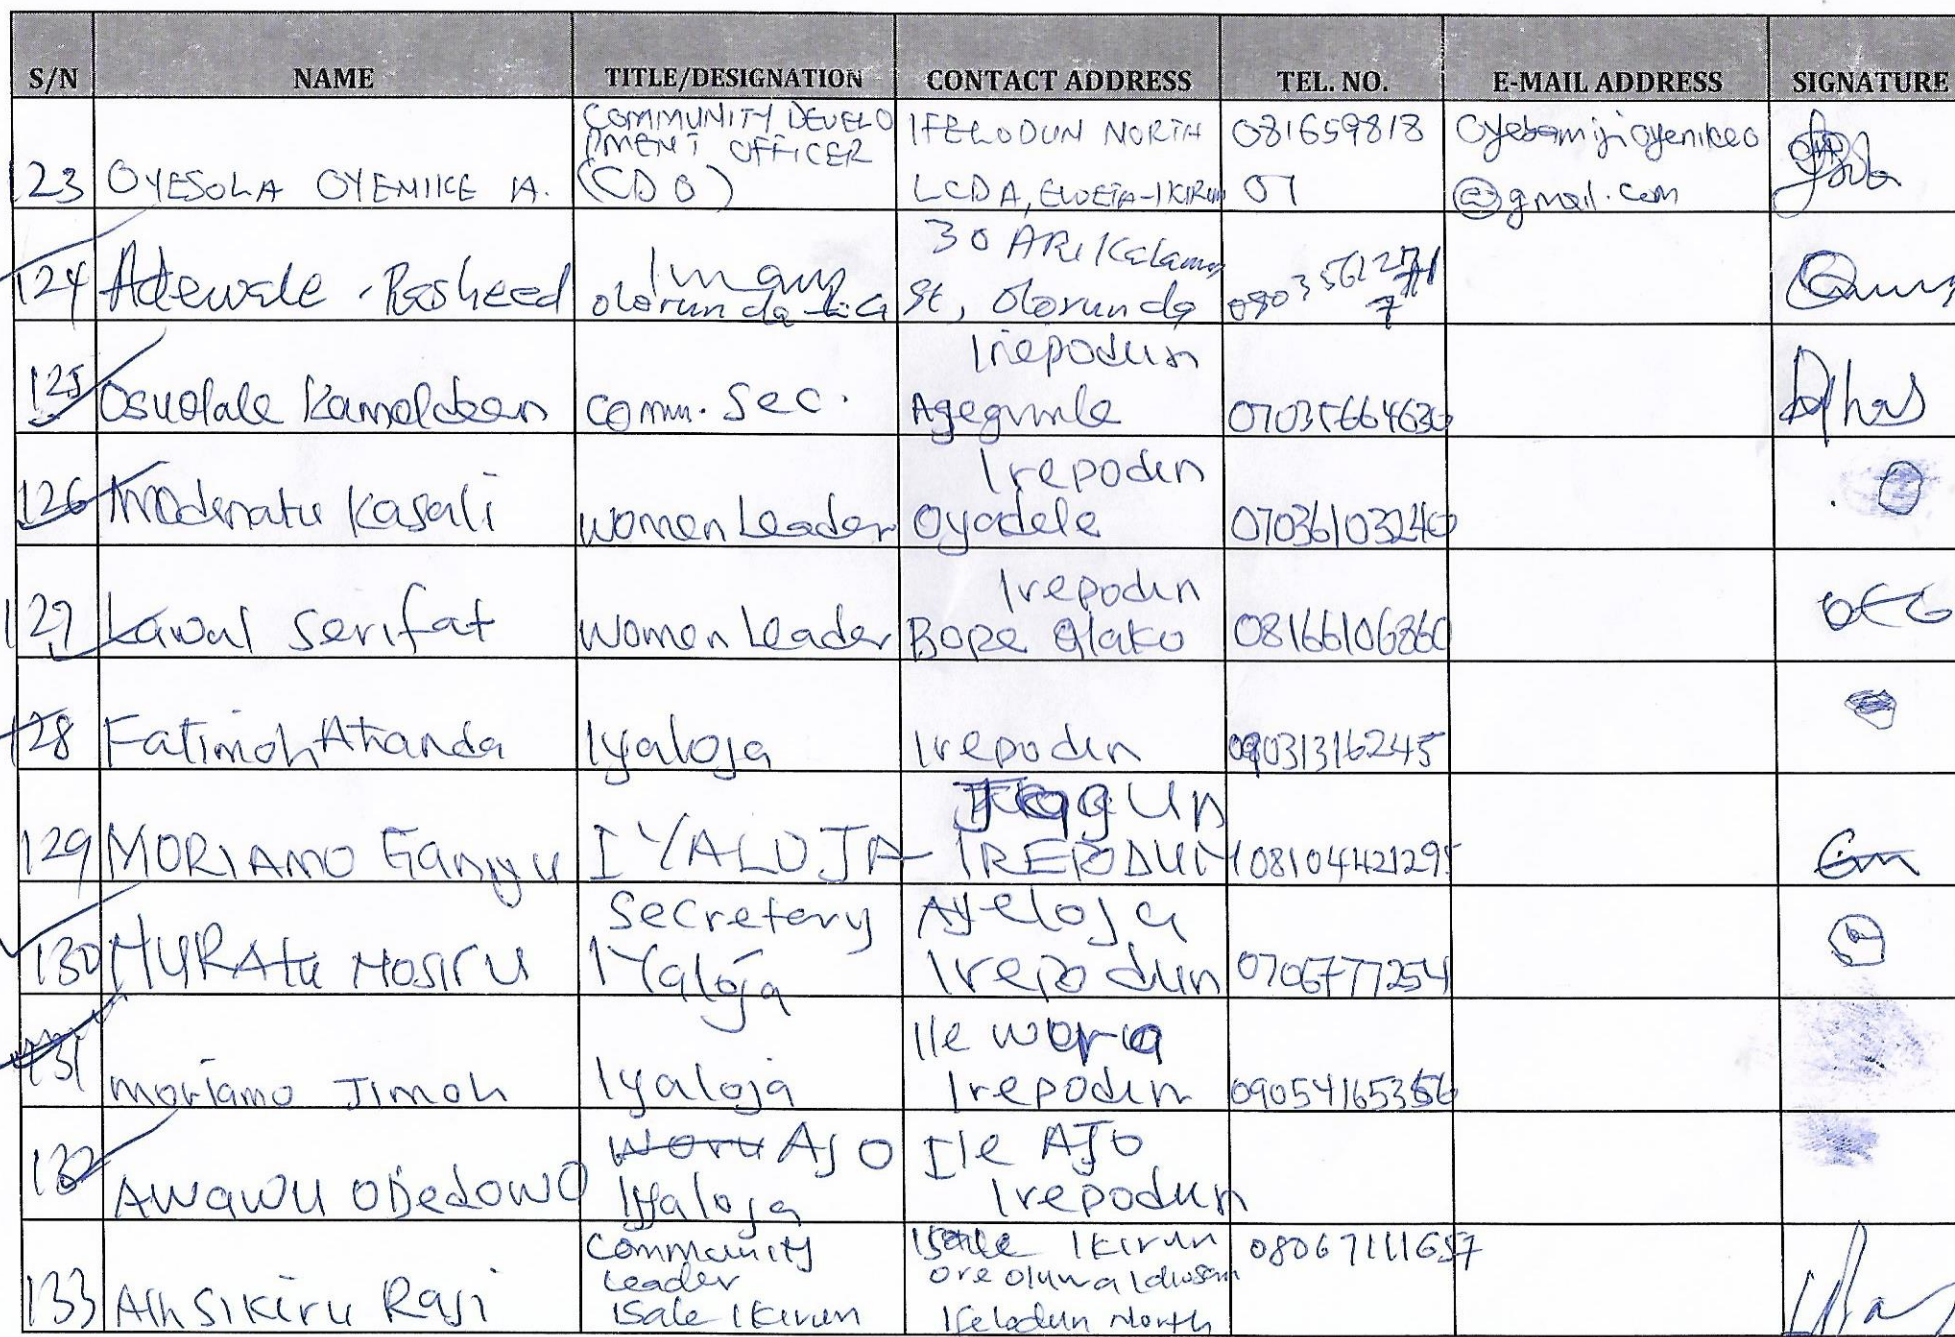 S/N NAME TITLE/DESIGNATION CONTACT ADDRESS TEL. NO. E-MAIL ADDRESS SIGNATURE
123 OYESOLA OYENIKE A. COMMUNITY DEVELO PMENT OFFICER (CDO) IFELODUN NORTH LCDA, 081659818 01 @gmail.com
124 Adewale Rasheed Imam olorunda LG 30 ARI St, Olorunda
125 Osuolale Kamaldeen Comm. Sec. Irepodun
126 Modinatu Kasali Women Leader Irepodun Oyadele 07036103240
127 Lawal Serifat Women Leader Irepodun Bope Olako 08166106860
128 Fatimoh Ahanda Iyaloja Irepodun 09031316245
129 MORIAMO Ganiyu IYALOJA Jagun IREPODUN 08104421295
130 MURAtu Mosiru Secretery IYaloja Ayeloja Irepodun 0706777254
131 moriamo Jimoh Iyaloja Ile Irepodun
132 AWAWU OBedowo AJO Iyaloja Ile AJO Irepodun
133 Alh Sikiru Raji Community Leader Isale Ikirun Isale Ikirun Ifelodun North